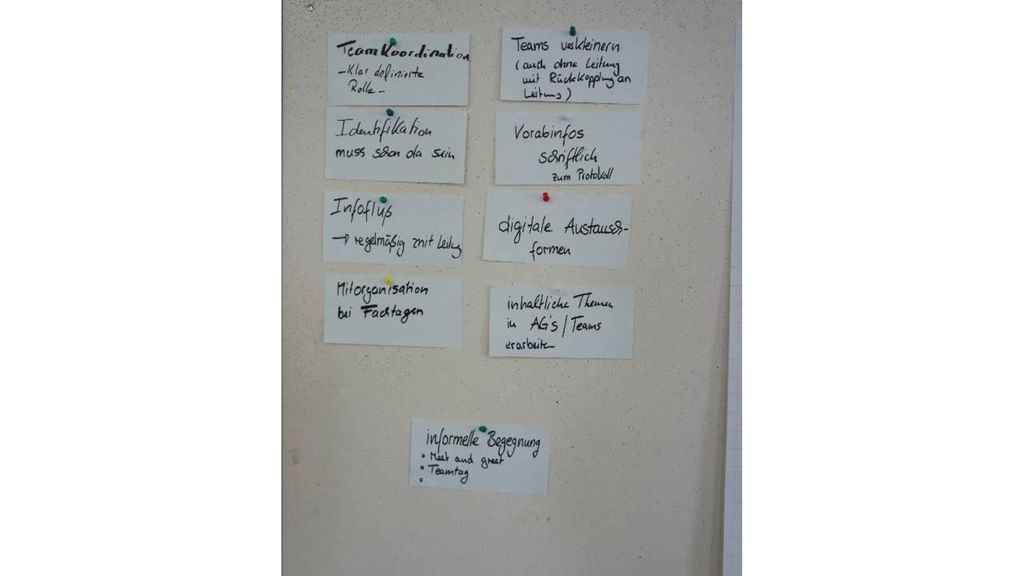 Teamkoordination
- Klar definierte
Rolle -
Identifikation
muss schon da sein
Infofluß
→ regelmäßig mit Leitung
Mitorganisation
bei Fachtagen
Teams verkleinern
(auch ohne Leitung
mit Rückkopplung an
Leitung)
Vorabinfos
schriftlich
zum Protokoll
digitale Austausch-
formen
inhaltliche Themen
in AG's / Teams
erarbeiten
informelle Begegnung
• Meet and greet
• Teamtag
•